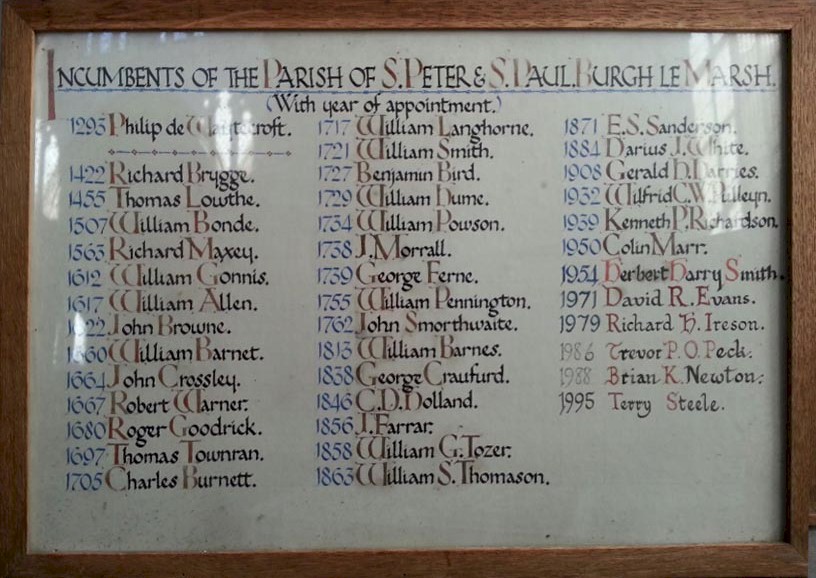 INCUMBENTS OF THE PARISH OF S. PETER & S. PAUL. BURGH LE MARSH.
(With year of appointment.)
1295 Philip de
1422 Richard Brygge.
1455 Thomas Lowthe.
1507 William Bonde.
1563 Richard Maxey.
1612 William Gonnis.
1617 William Allen.
1622 John Browne.
1660 William Barnet.
1664 John Crossley.
1667 Robert Warner.
1680 Roger Goodrick.
1697 Thomas Townran.
1705 Charles Burnett.
1717 William Langhorne.
1721 William Smith.
1727 Benjamin Bird.
1729 William Hume.
1734 William Powson.
1738 J. Morrall.
1739 George Ferne.
1755 William Pennington.
1762 John Smorthwaite.
1813 William Barnes.
1838 George Craufurd.
1846 C. D. Holland.
1856 J. Farrar.
1858 William G. Tozer.
1863 William S. Thomason.
1871 E. S. Sanderson.
1884 Darius J. White.
1908 Gerald H. Harries.
1932 Wilfrid C. W. Pulleyn.
1939 Kenneth P. Richardson.
1950 Colin Marr.
1954 Herbert Harry Smith.
1971 David R. Evans.
1979 Richard H. Ireson.
1986 Trevor P. O. Peck.
1988 Brian K. Newton.
1995 Terry Steele.